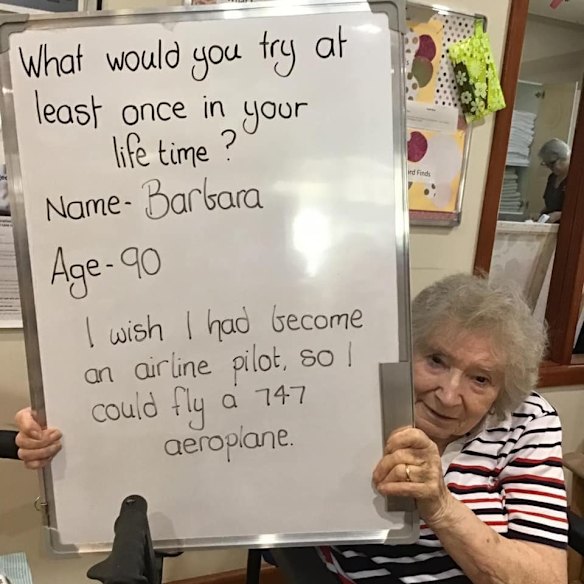 What would you try at
least once in your
life time ?
Name- Barbara
Age-90
I wish I had become
an airline pilot, so I
could fly a 747
aeroplane.
ird Finds